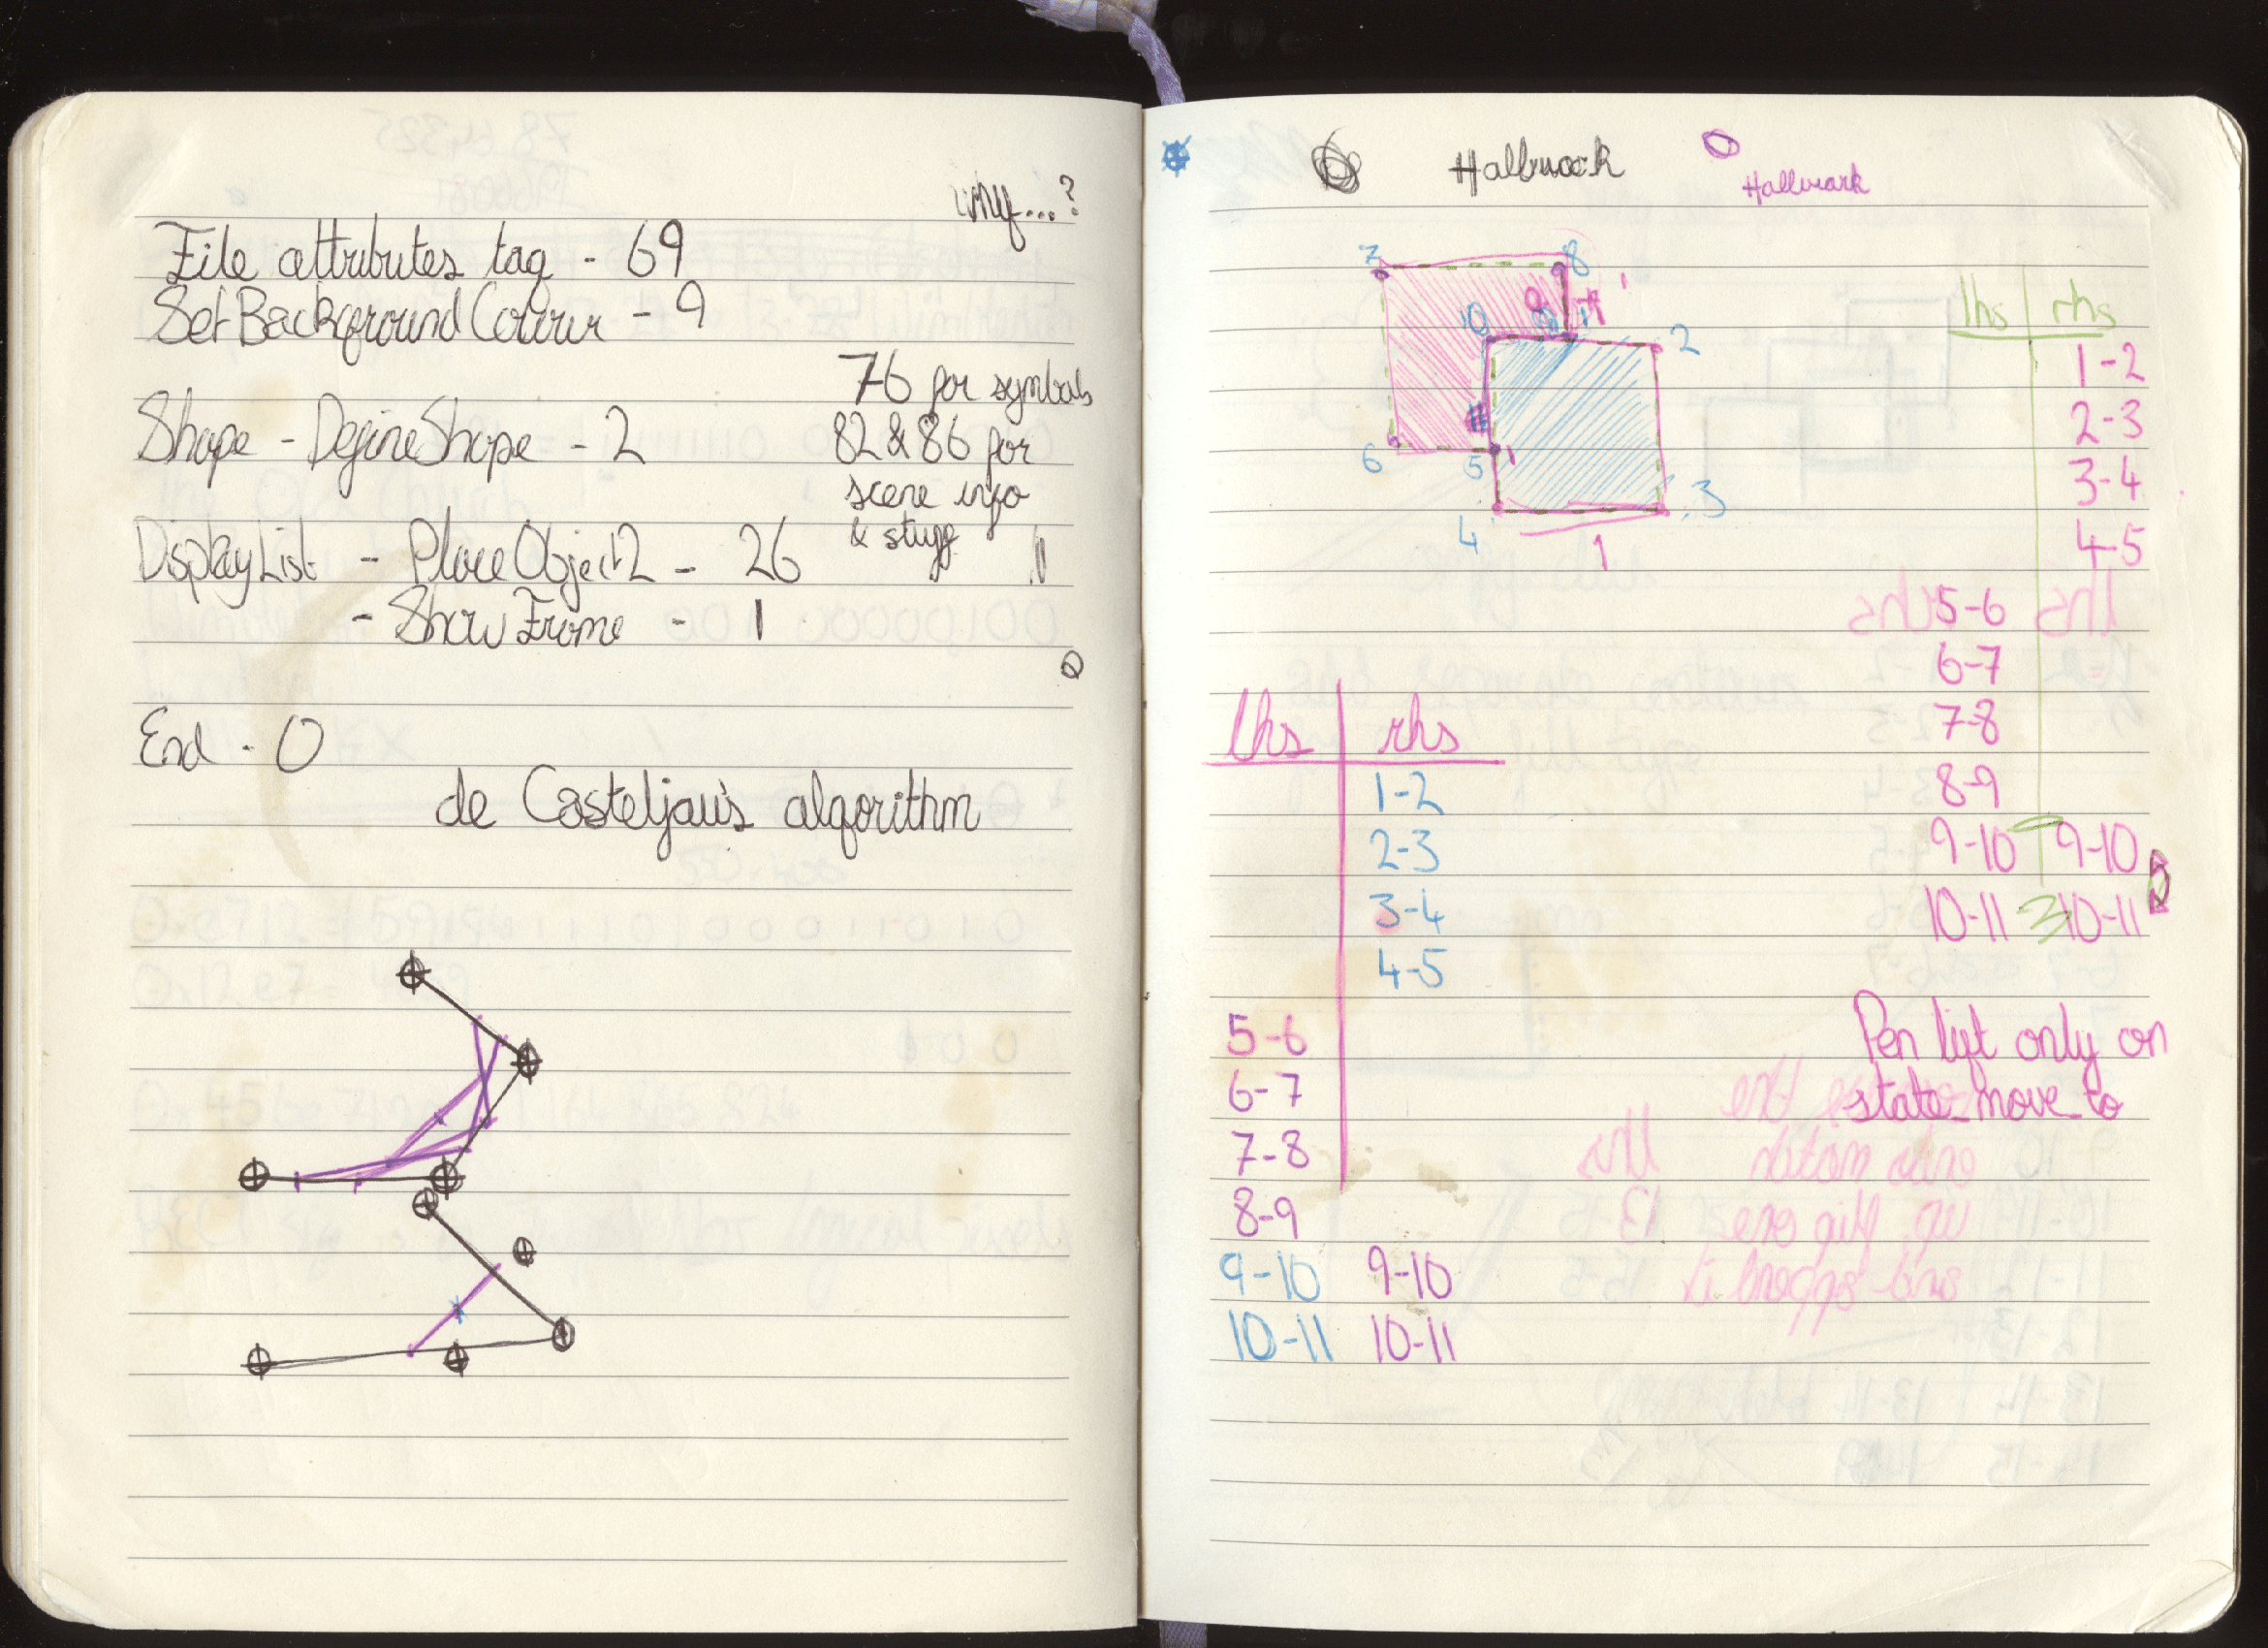 why...?
File attributes tag - 69
SetBackgroundColour - 9
76 for symbols
Shape - DefineShape - 2
82 & 86 for
scene info
& stuff
DisplayList - PlaceObject2 - 26
- ShowFrame - 1
End - 0
de Casteljau's algorithm
Hallmark
7 8
10 2
6 5 1
4 3
1
lhs rhs
1-2
2-3
3-4
4-5
5-6
6-7
7-8
8-9
9-10 9-10
10-11 10-11
lhs rhs
1-2
2-3
3-4
4-5
5-6
6-7
7-8
8-9
9-10 9-10
10-11 10-11
Pen lift only on
state move to